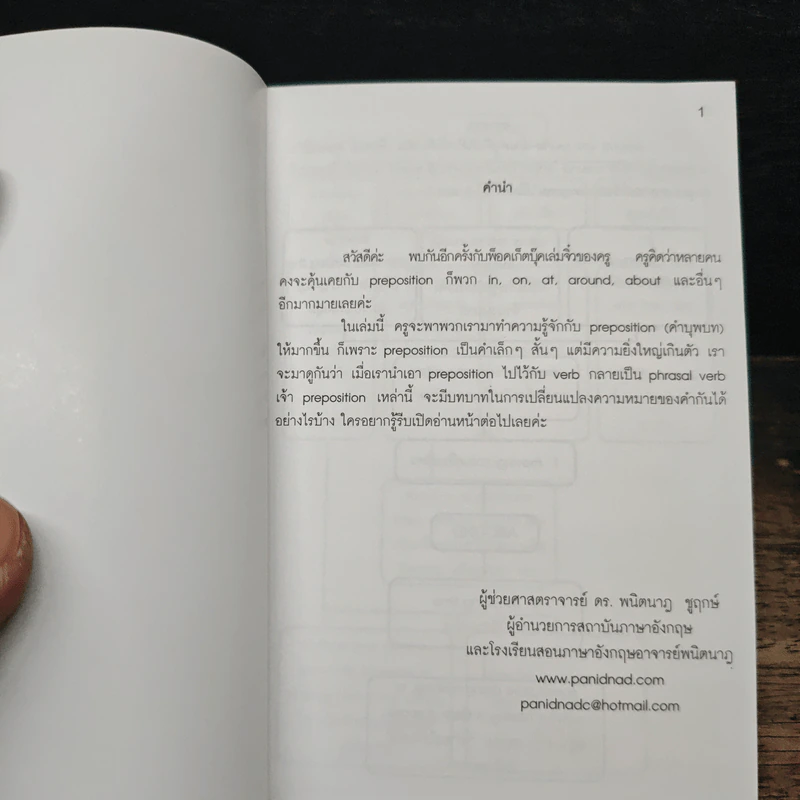 1
คำนำ
สวัสดีค่ะ พบกันอีกครั้งกับพ็อคเก็ตบุ๊คเล่มจิ๋วของครู ครูคิดว่าหลายคน
คงจะคุ้นเคยกับ preposition ก็พวก in, on, at, around, about และอื่นๆ
อีกมากมายเลยค่ะ
ในเล่มนี้ ครูจะพาพวกเรามาทำความรู้จักกับ preposition (คำบุพบท)
ให้มากขึ้น ก็เพราะ preposition เป็นคำเล็กๆ สั้นๆ แต่มีความยิ่งใหญ่เกินตัว เรา
จะมาดูกันว่า เมื่อเรานำเอา preposition ไปไว้กับ verb กลายเป็น phrasal verb
เจ้า preposition เหล่านี้ จะมีบทบาทในการเปลี่ยนแปลงความหมายของคำกันได้
อย่างไรบ้าง ใครอยากรู้รีบเปิดอ่านหน้าต่อไปเลยค่ะ
ผู้ช่วยศาสตราจารย์ ดร. พนิตนาฏ ชูฤกษ์
ผู้อำนวยการสถาบันภาษาอังกฤษ
และโรงเรียนสอนภาษาอังกฤษอาจารย์พนิตนาฏ
www.panidnad.com
panidnadc@hotmail.com